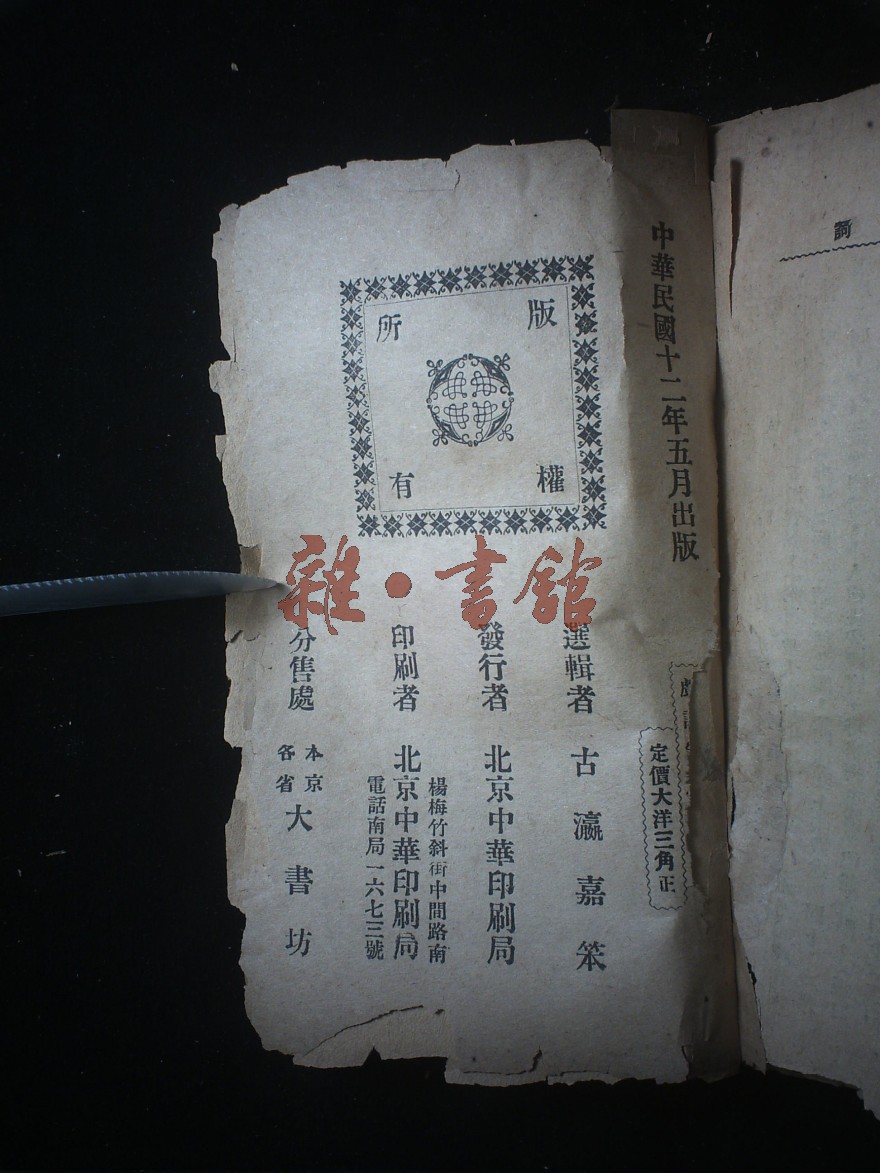 詞
中華民國十二年五月出版
定價大洋三角正
版權所有
選輯者 古瀛嘉笨
發行者 北京中華印刷局
楊梅竹斜街中間路南
印刷者 北京中華印刷局
電話南局一六七三號
分售處 本京各省大書坊
雜·書館